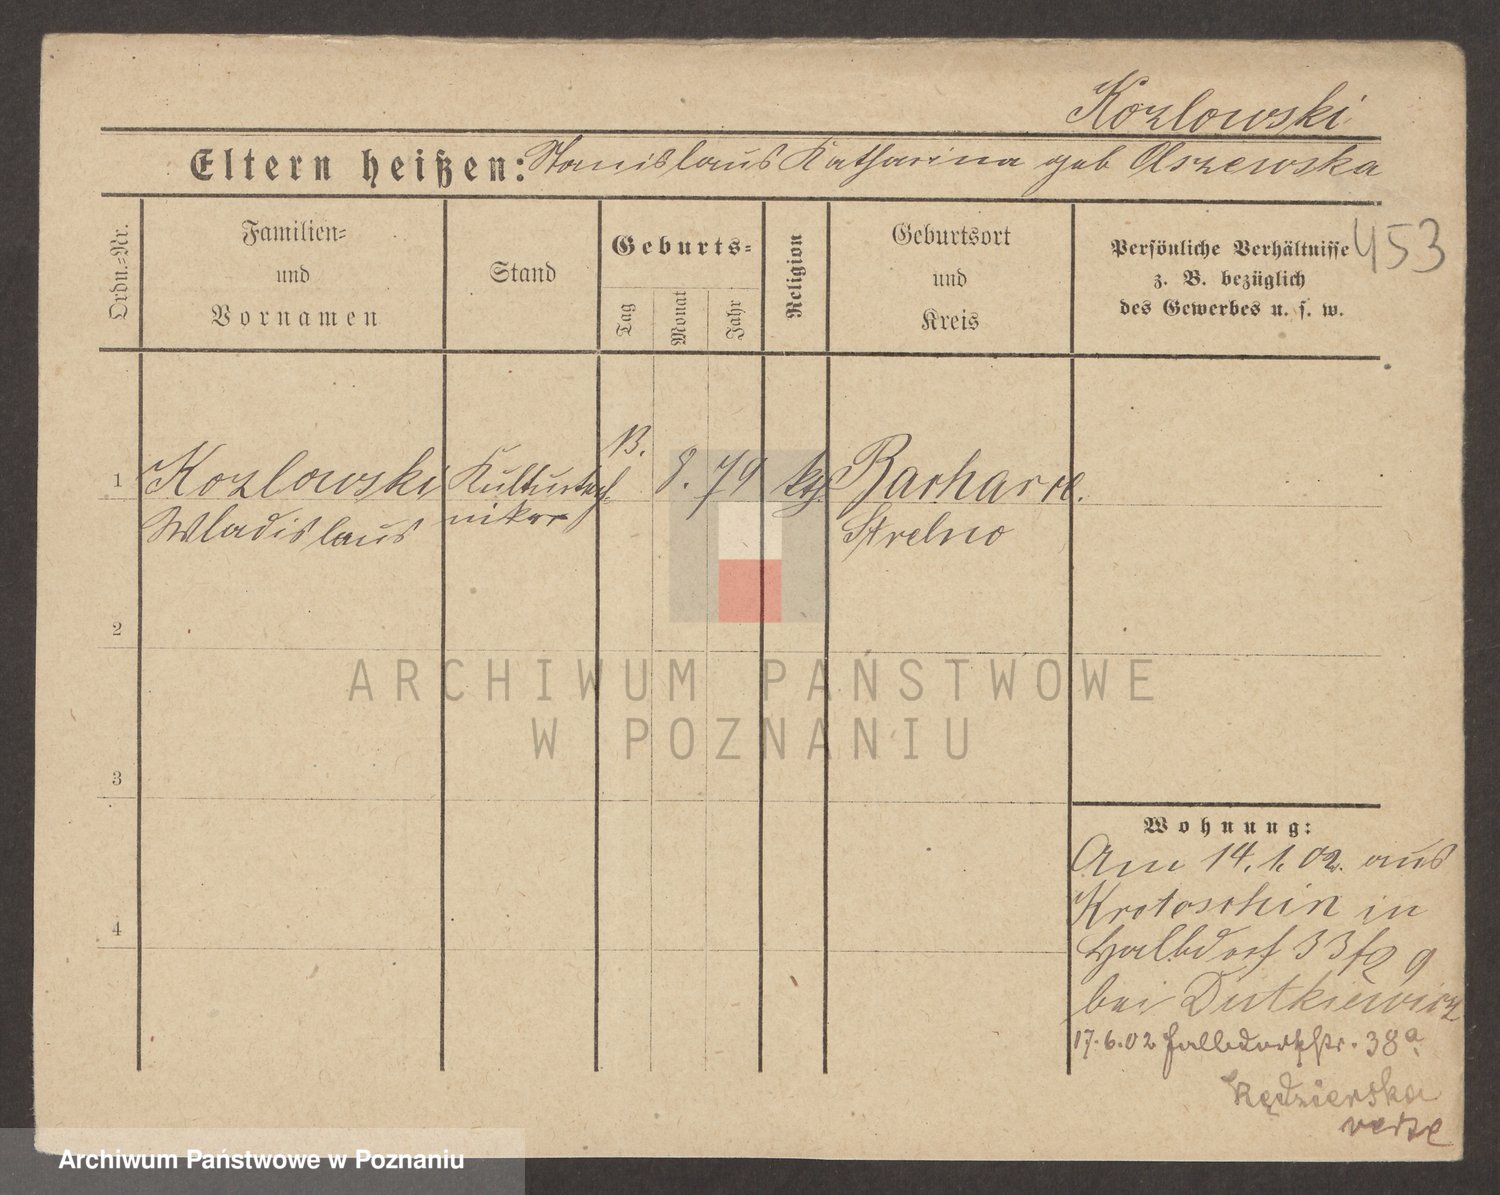 Kozlowski
Eltern heißen: Stanislaus Katharina geb Olszewska
Ordn.-Nr.
Familien-
und
Vornamen
Stand
Geburts-
Tag
Monat
Jahr
Religion
Geburtsort
und
Kreis
Persönliche Verhältnisse
z. B. bezüglich
des Gewerbes u. s. w.
453
1
Kozlowski
Wladislaus
Kulturtech-
niker
8. 79
kth.
Strelno
2
3
4
Wohnung:
Am 14.1.02. aus
Krotoschin in
Halbdorf 33
bei Dutkiewicz
17.6.02 Halbdorfstr. 38a.
Kędzierska
ARCHIWUM PAŃSTWOWE
W POZNANIU
Archiwum Państwowe w Poznaniu